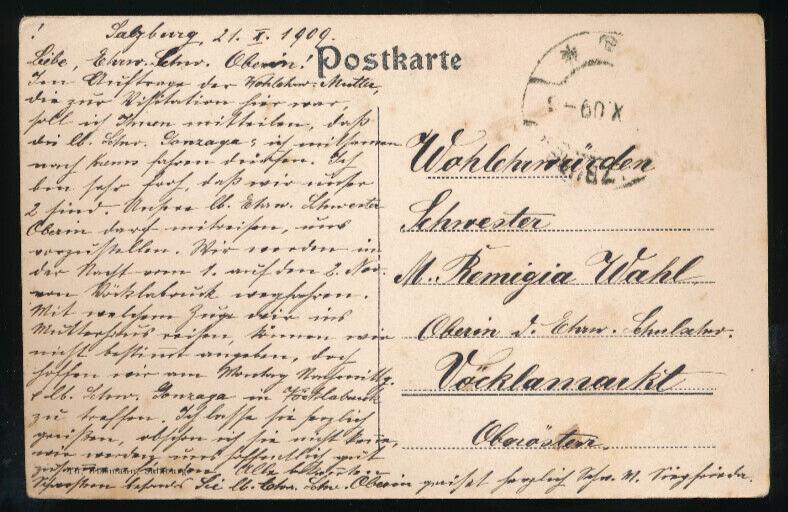 ! Salzburg, 21. X. 1909.
Postkarte
Liebe, Ehrw. Schw. Oberin!
Im Auftrage der Wohlehrw. Mutter,
die zur Visitation hier war,
soll ich Ihnen mitteilen, daß
die lb. Schw. Gonzaga u. ich mitsammen
nach fahren dürfen. Ich
bin sehr froh, daß wir unser
2 sind. Unsere lb. Ehrw. Schwester
Oberin darf mitreisen, uns
vorzustellen. Wir werden in
der Nacht vom 1. auf den 2. Nov.
von Vöcklabruck wegfahren.
Mit welchem Zuge wir ins
Mutterhaus reisen, können wir
nicht bestimmt angeben, doch
hoffen wir am Montag Nachmittg.
lb. Schw. Gonzaga in Vöcklabruck
zu treffen. Ich lasse sie herzlich
grüßen, obschon ich sie nicht kenne,
wir werden uns hoffentlich gut
zusammen Alle bekannten
Schwestern besonders Sie lb. Ehrw. Schw. Oberin grüßt herzlich Schw. M. Siegfrieda.
X.09-
Wohlehrwürden
Schwester
M. Remigia Wahl
Oberin d. Ehrw. Schulschw.
Vöcklamarkt
Oberösterr.